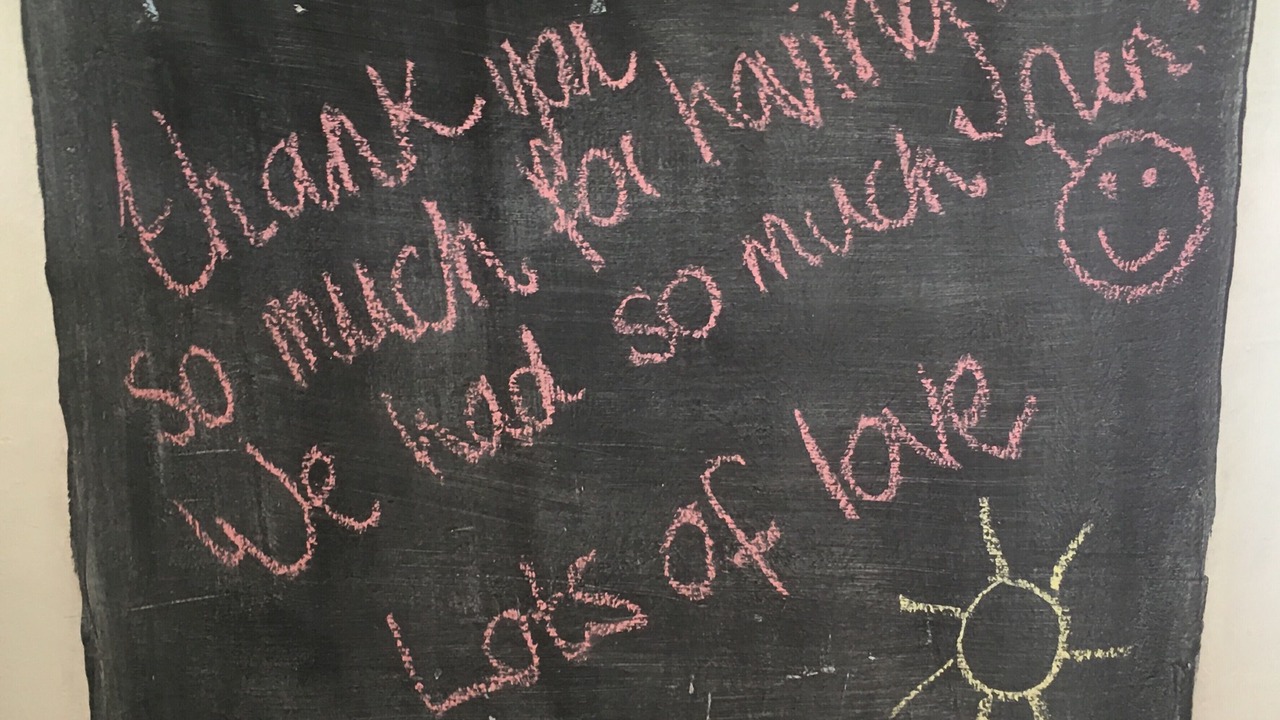 thank you
so much for having
We had so much fun!
Lots of love